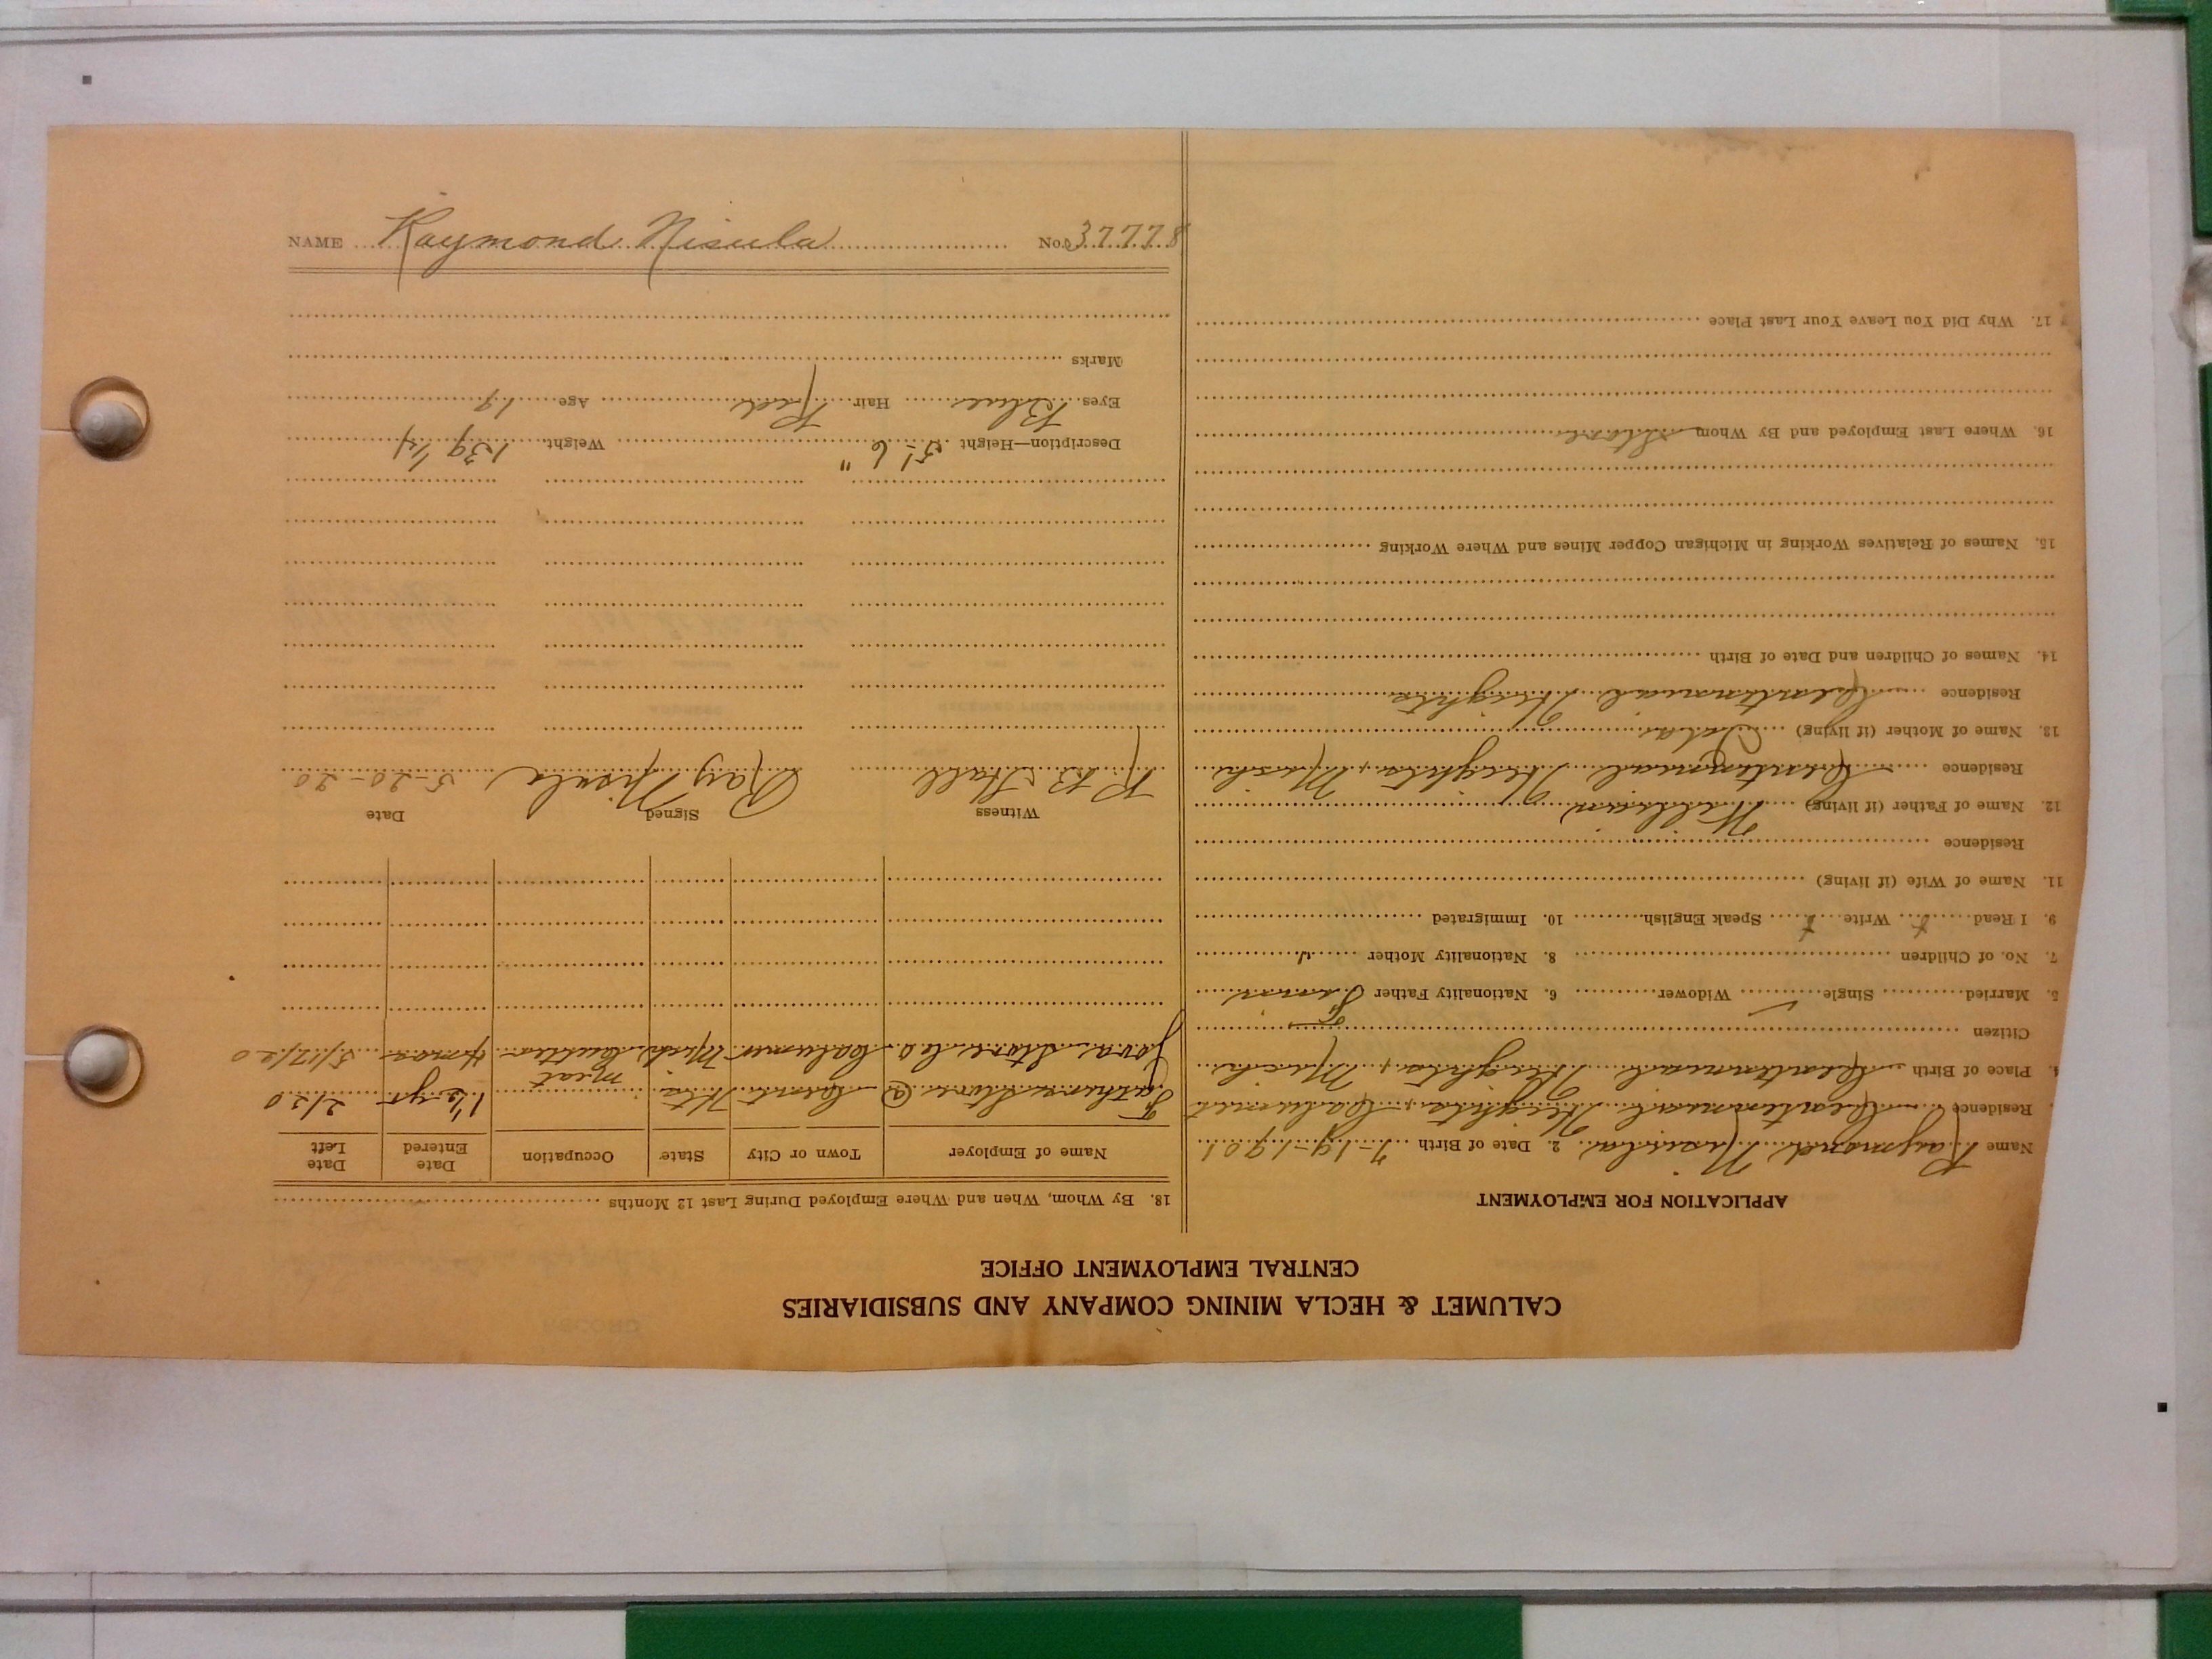 CALUMET & HECLA MINING COMPANY AND SUBSIDIARIES
CENTRAL EMPLOYMENT OFFICE
APPLICATION FOR EMPLOYMENT
Name Raymond Nisula 2. Date of Birth 7-19-1901
Residence Centennial Heights, Calumet
4. Place of Birth Centennial Heights, Mich
Citizen
5. Married Single ✓ Widower 6. Nationality Father Finnish
7. No. of Children 8. Nationality Mother "
9. I Read Write Speak English 10. Immigrated
11. Name of Wife (if living)
Residence
12. Name of Father (if living) William
Residence Centennial Heights, Mich
13. Name of Mother (if living)
Residence Centennial Heights
14. Names of Children and Date of Birth
15. Names of Relatives Working in Michigan Copper Mines and Where Working
16. Where Last Employed and By Whom Store
17. Why Did You Leave Your Last Place
18. By Whom, When and Where Employed During Last 12 Months
Name of Employer Town or City State Occupation Date Entered Date Left
Store @ Cent Hts meat 1½ yr 2/20
Store Co. Calumet Mich Cutter 4 mos 5/17/20
Witness Signed Date
R B Hall Ray Nisula 5-20-20
Description—Height 5' 6" Weight 139 1/4
Eyes Blue Hair Red Age 19
Marks
NAME Raymond Nisula No. 37778